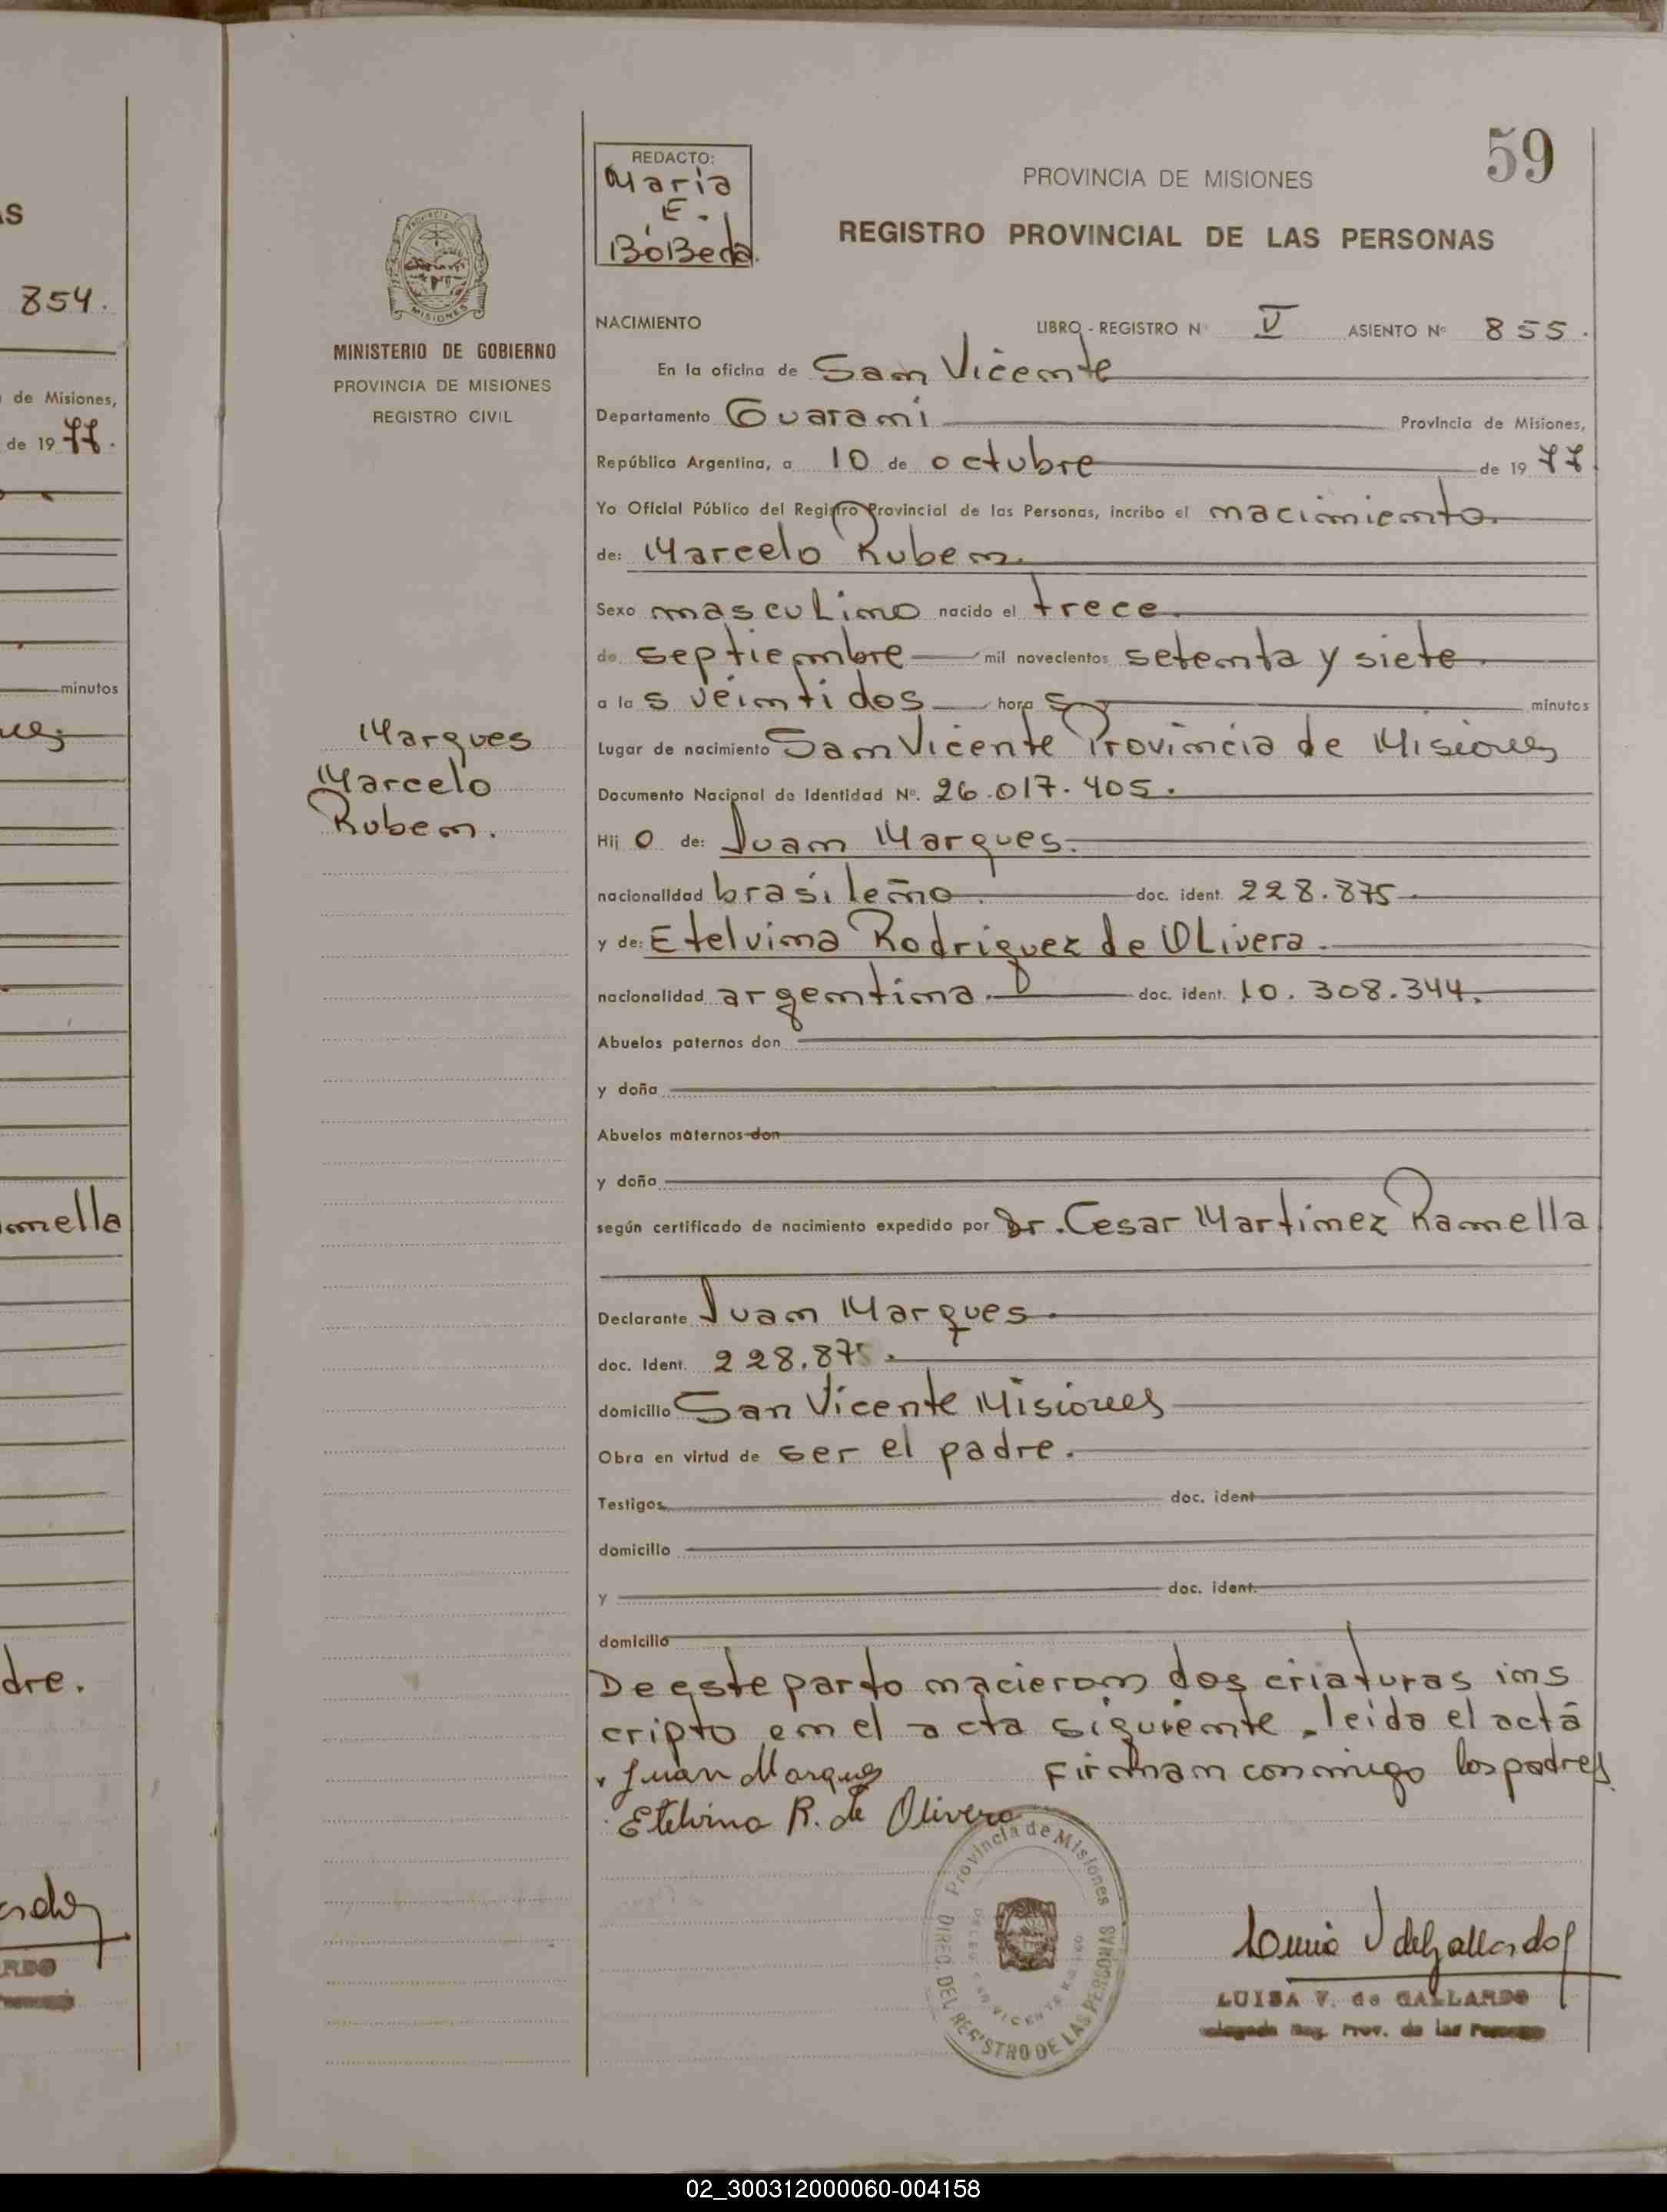 S
854.
de Misiones,
de 19 77.
minutos
mella
dre.
RDO
59
REDACTO:
Maria
E.
BóBeda.
PROVINCIA DE MISIONES
REGISTRO PROVINCIAL DE LAS PERSONAS
PROVINCIA
MISIONES
MINISTERIO DE GOBIERNO
PROVINCIA DE MISIONES
REGISTRO CIVIL
Marques
Marcelo
Ruben.
NACIMIENTO LIBRO - REGISTRO Nº V ASIENTO Nº 855.
En la oficina de San Vicente
Departamento Guarani Provincia de Misiones,
República Argentina, a 10 de octubre de 19 77
Yo Oficial Público del Registro Provincial de las Personas, incribo el nacimiento.
de: Marcelo Ruben.
Sexo masculino nacido el trece.
de septiembre mil novecientos setenta y siete.
a la s veintidos hora s minutos
Lugar de nacimiento San Vicente Provincia de Misiones
Documento Nacional de Identidad Nº. 26.017.405.
Hij o de: Juan Marques.
nacionalidad brasileño. doc. ident. 228.875
y de: Etelvina Rodriguez de Olivera.
nacionalidad argentina. doc. ident. 10.308.344.
Abuelos paternos don
y doña
Abuelos maternos don
y doña
según certificado de nacimiento expedido por Dr. Cesar Martinez Ramella
Declarante Juan Marques.
doc. Ident. 228.875.
domicilio San Vicente Misiones
Obra en virtud de ser el padre.
Testigos doc. ident
domicilio
y doc. ident.
domicilio
De este parto nacieron dos criaturas ins
cripto en el acta siguiente. leida el acta
Juan Marques firman conmigo los padres
Etelvina R. de Olivera
Provincia de Misiones
DIREC. DEL REGISTRO DE LAS PERSONAS
LUISA V. de GALLARDO
Reg. Prov. de las
02_300312000060-004158